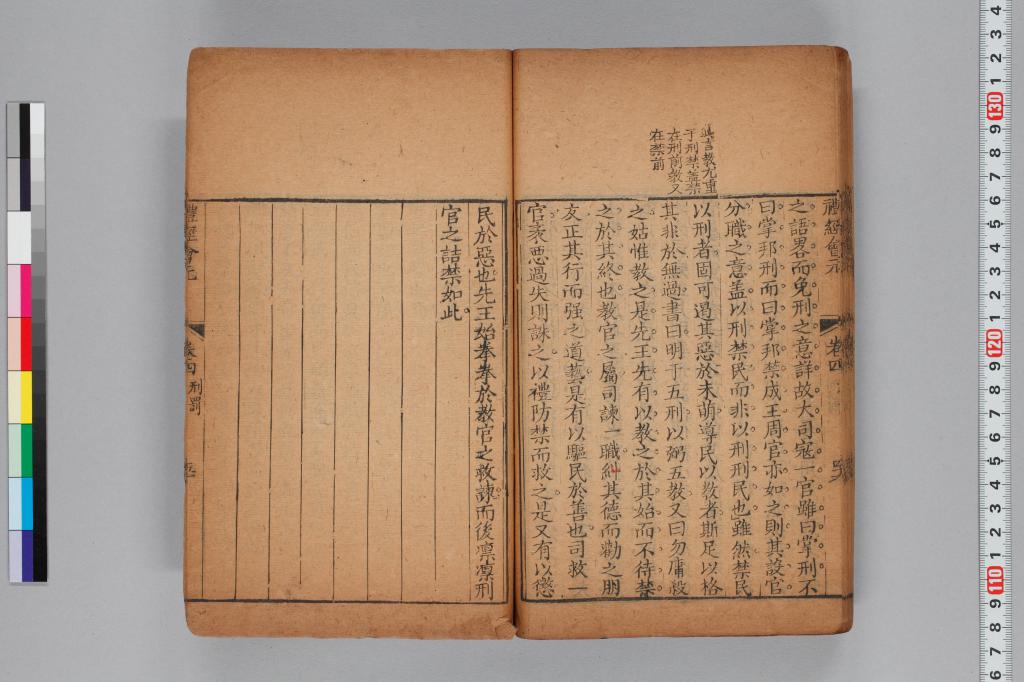 禮經會元
卷四
之語畧而免刑之意詳故大司寇一官雖曰掌刑不
曰掌邦刑而曰掌邦禁成王周官亦如之則其設官
分職之意盖以刑禁民而非以刑刑民也雖然禁民
以刑者固可遏其惡於未萌導民以教者斯足以格
其非於無過書曰明于五刑以弼五教又曰勿庸殺
之姑惟教之是先王先有以教之於其始而不待禁
之於其終也教官之屬司諫一職糾其德而勸之朋
友正其行而强之道藝是有以驅民於善也司救一
官衺惡過失則誅之以禮防禁而救之是又有以懲
此言教尤重
于刑禁盖禁
在刑前教又
在禁前
民於惡也先王始拳拳於教官之救諫而後凛凛刑
官之詰禁如此
禮經會元
卷四
刑罰